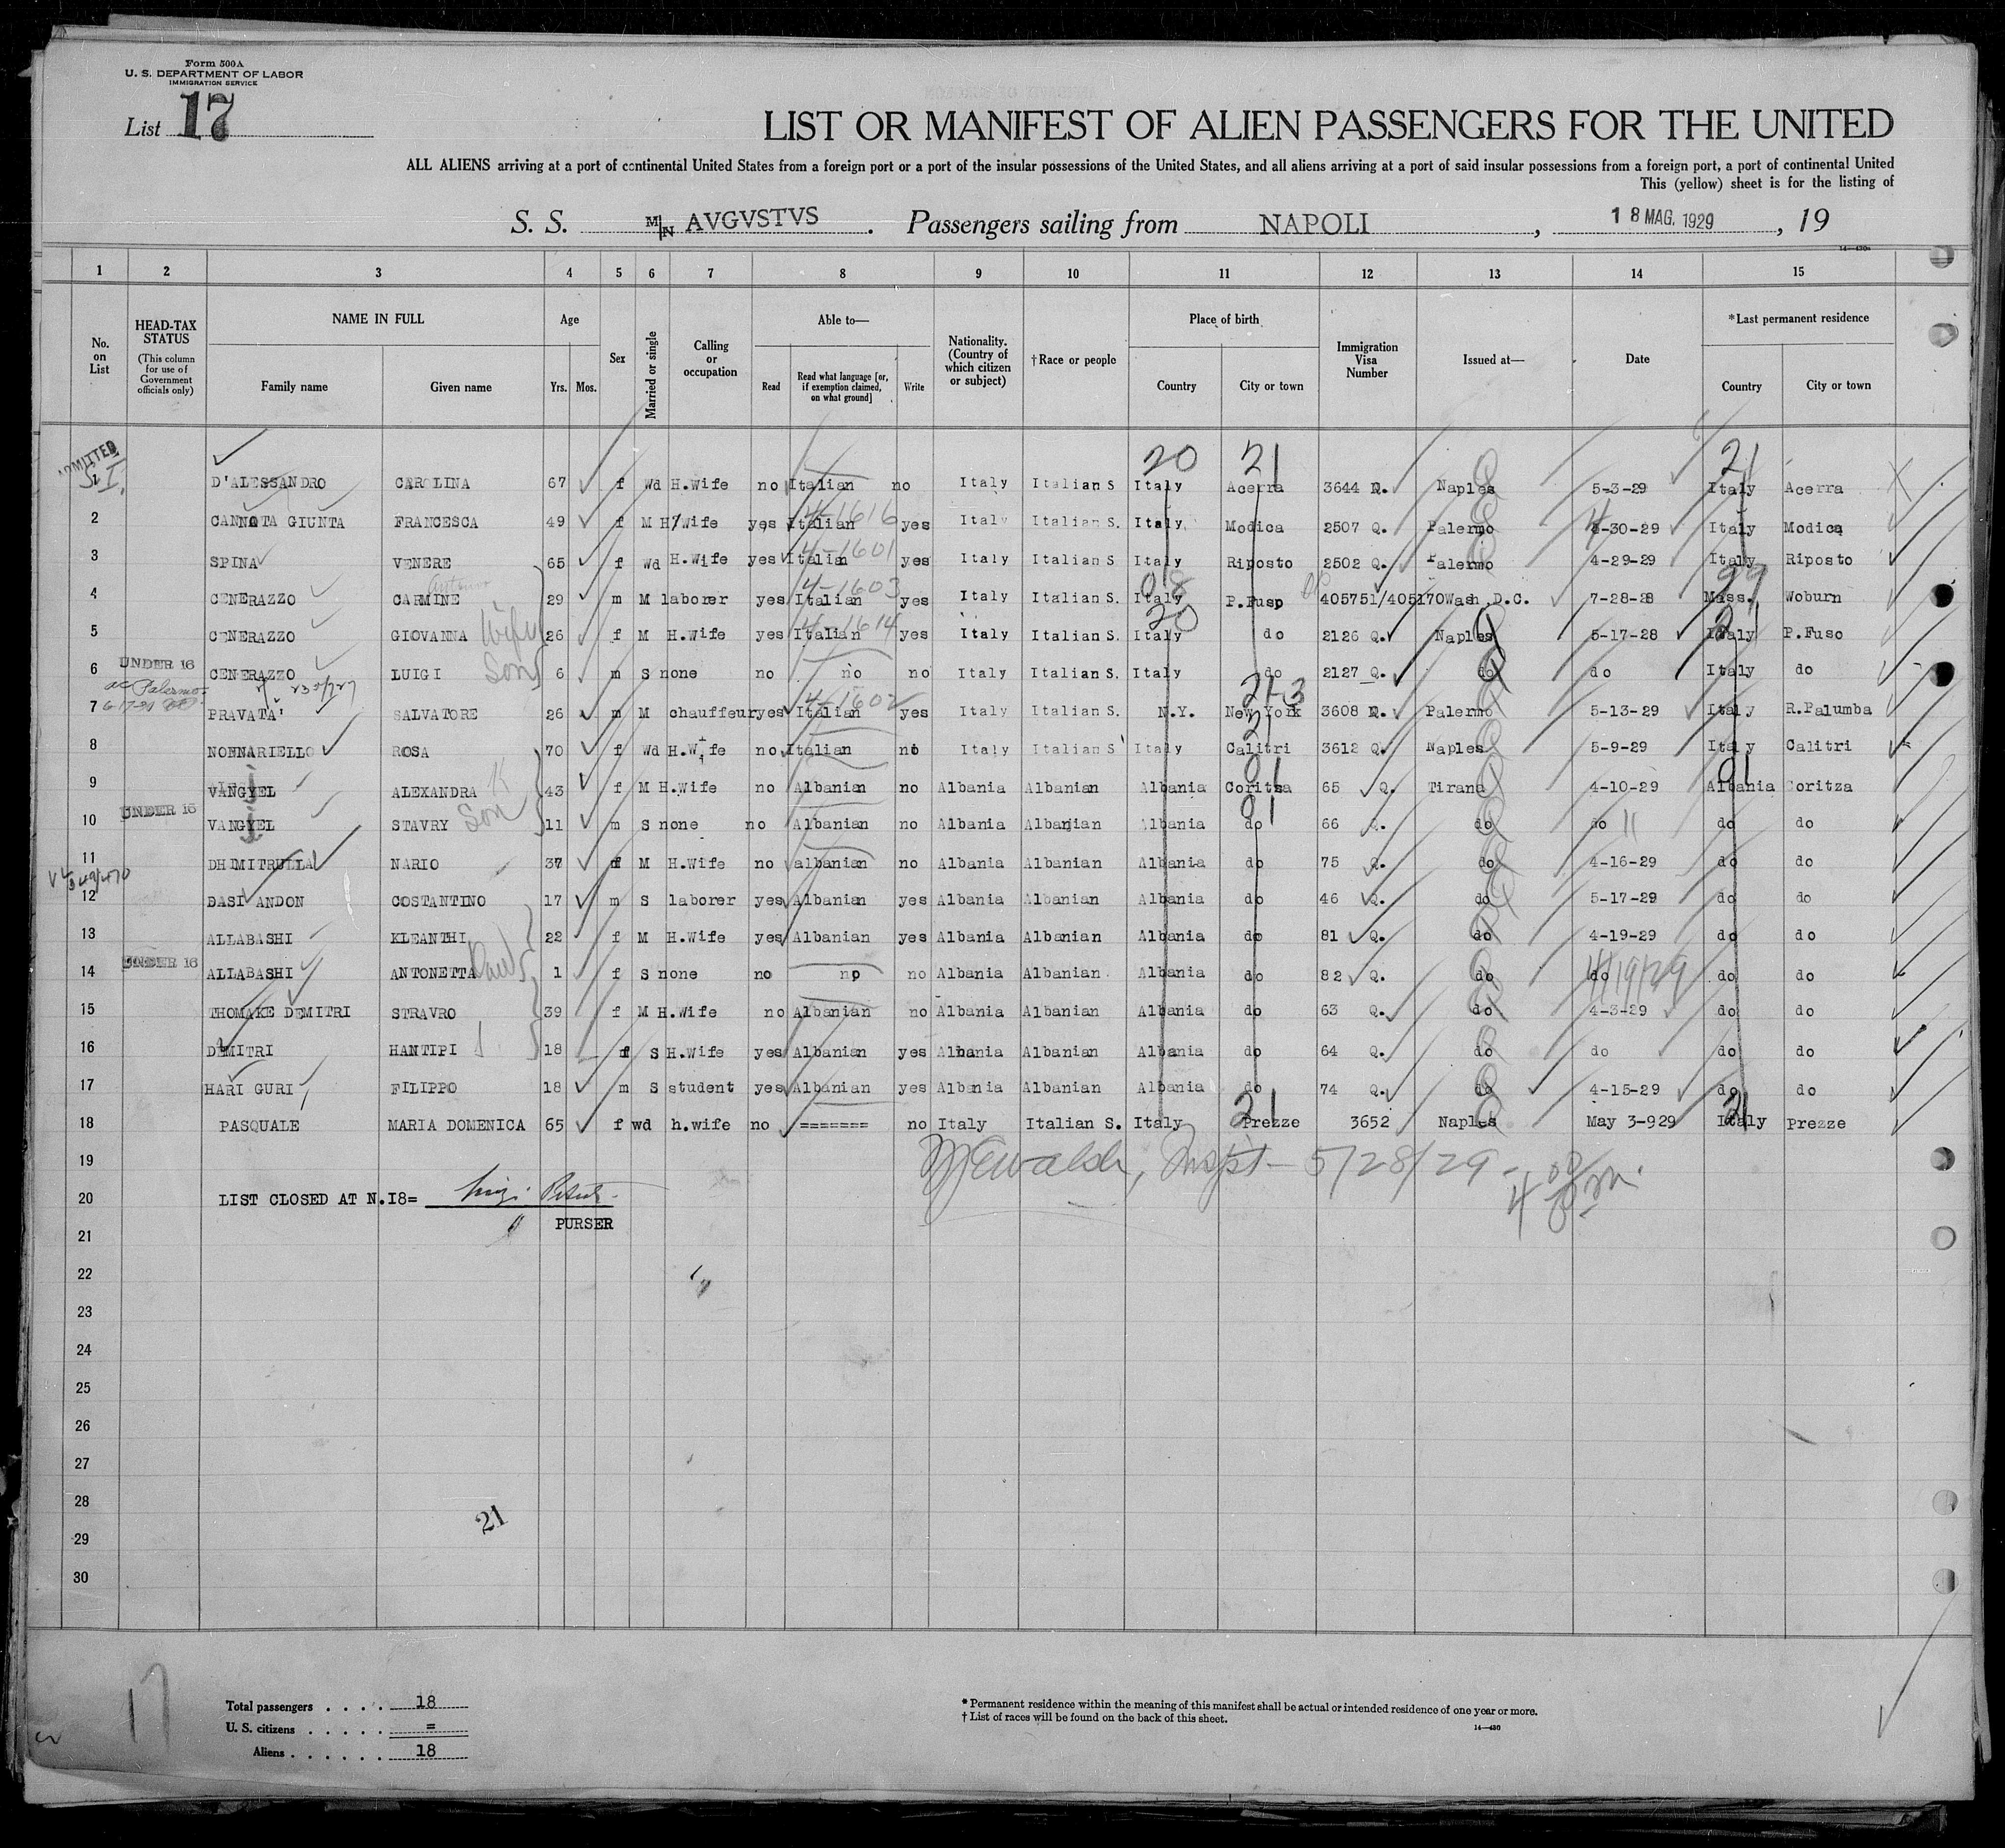 Form 500A
U. S. DEPARTMENT OF LABOR
IMMIGRATION SERVICE
List 17
LIST OR MANIFEST OF ALIEN PASSENGERS FOR THE UNITED
ALL ALIENS arriving at a port of continental United States from a foreign port or a port of the insular possessions of the United States, and all aliens arriving at a port of said insular possessions from a foreign port, a port of continental United
This (yellow) sheet is for the listing of
S. S. M/N AVGVSTVS . Passengers sailing from NAPOLI , 18 MAG. 1929 , 19
14—430a
1 2 3 4 5 6 7 8 9 10 11 12 13 14 15
No. on List HEAD-TAX STATUS (This column for use of Government officials only) NAME IN FULL Family name Given name Age Yrs. Mos. Sex Married or single Calling or occupation Able to— Read Read what language [or, if exemption claimed, on what ground] Write Nationality. (Country of which citizen or subject) †Race or people Place of birth Country City or town Immigration Visa Number Issued at— Date *Last permanent residence Country City or town
ADMITTED S.I.
20 21 21
1 D'ALESSANDRO CAROLINA 67 f Wd H.Wife no Italian no Italy Italian S Italy Acerra 3644 Q. Naples 5-3-29 Italy Acerra
2 CANNATA GIUNTA FRANCESCA 49 f M H/Wife yes Italian 4-1616 yes Italy Italian S. Italy Modica 2507 Q. Palermo 4-30-29 Italy Modica
3 SPINA VENERE 65 f Wd H.Wife yes Italian 4-1601 yes Italy Italian S. Italy Riposto 2502 Q. Palermo 4-29-29 Italy Riposto
4 CENERAZZO CARMINE 29 m M laborer yes Italian 4-1603 yes Italy Italian S. Italy P.Fuso 405751/405170 Wash.D.C. 7-28-28 Mass. Woburn
5 CENERAZZO GIOVANNA Wife 26 f M H.Wife yes Italian 4-1614 yes Italy Italian S. Italy do 2126 Q. Naples 5-17-28 Italy P.Fuso
6 UNDER 16 CENERAZZO LUIGI Son 6 m S none no no no Italy Italian S. Italy do 2127 Q. do do Italy do
7 PRAVATA' SALVATORE 26 m M chauffeur yes Italian 4-1602 yes Italy Italian S. N.Y. New York 3608 Q. Palermo 5-13-29 Italy R.Palumba
8 NOENNARIELLO ROSA 70 f Wd H.Wife no Italian no Italy Italian S Italy Calitri 3612 Q. Naples 5-9-29 Italy Calitri
9 VANGJEL ALEXANDRA 43 f M H.Wife no Albanian no Albania Albanian Albania Coritsa 65 Q. Tirana 4-10-29 Albania Coritza
10 UNDER 16 VANGJEL STAVRY Son 11 m S none no Albanian no Albania Albanian Albania do 66 Q. do do 11 do do
11 DHIMITRULLA NARIO 37 f M H.Wife no albanian no Albania Albanian Albania do 75 Q. do 4-16-29 do do
12 BASI ANDON COSTANTINO 17 m S laborer yes Albanian yes Albania Albanian Albania do 46 Q. do 5-17-29 do do
13 ALLABASHI KLEANTHI 22 f M H.Wife yes Albanian yes Albania Albanian Albania do 81 Q. do 4-19-29 do do
14 UNDER 16 ALLABASHI ANTONETTA Daut 1 f S none no no no Albania Albanian Albania do 82 Q. do do 4/19/29 do do
15 THOMAKE DEMITRI STRAVRO 39 f M H.Wife no Albanian no Albania Albanian Albania do 63 Q. do 4-3-29 do do
16 DIMITRI HANTIPI 18 f S H.Wife yes Albanian yes Albania Albanian Albania do 64 Q. do do do do
17 HARI GURI FILIPPO 18 m S student yes Albanian yes Albania Albanian Albania do 74 Q. do 4-15-29 do do
18 PASQUALE MARIA DOMENICA 65 f wd h.wife no ======= no Italy Italian S. Italy Prezze 3652 Naples May 3-929 Italy Prezze
19 Inspt- 5/28/29 - 4 00 pm.
20 LIST CLOSED AT N.I8=
PURSER
21
22
23
24
25
26
27
28
21
29
30
17
Total passengers . . . . 18
U. S. citizens . . . . . =
Aliens . . . . . . 18
* Permanent residence within the meaning of this manifest shall be actual or intended residence of one year or more.
† List of races will be found on the back of this sheet.
14—430